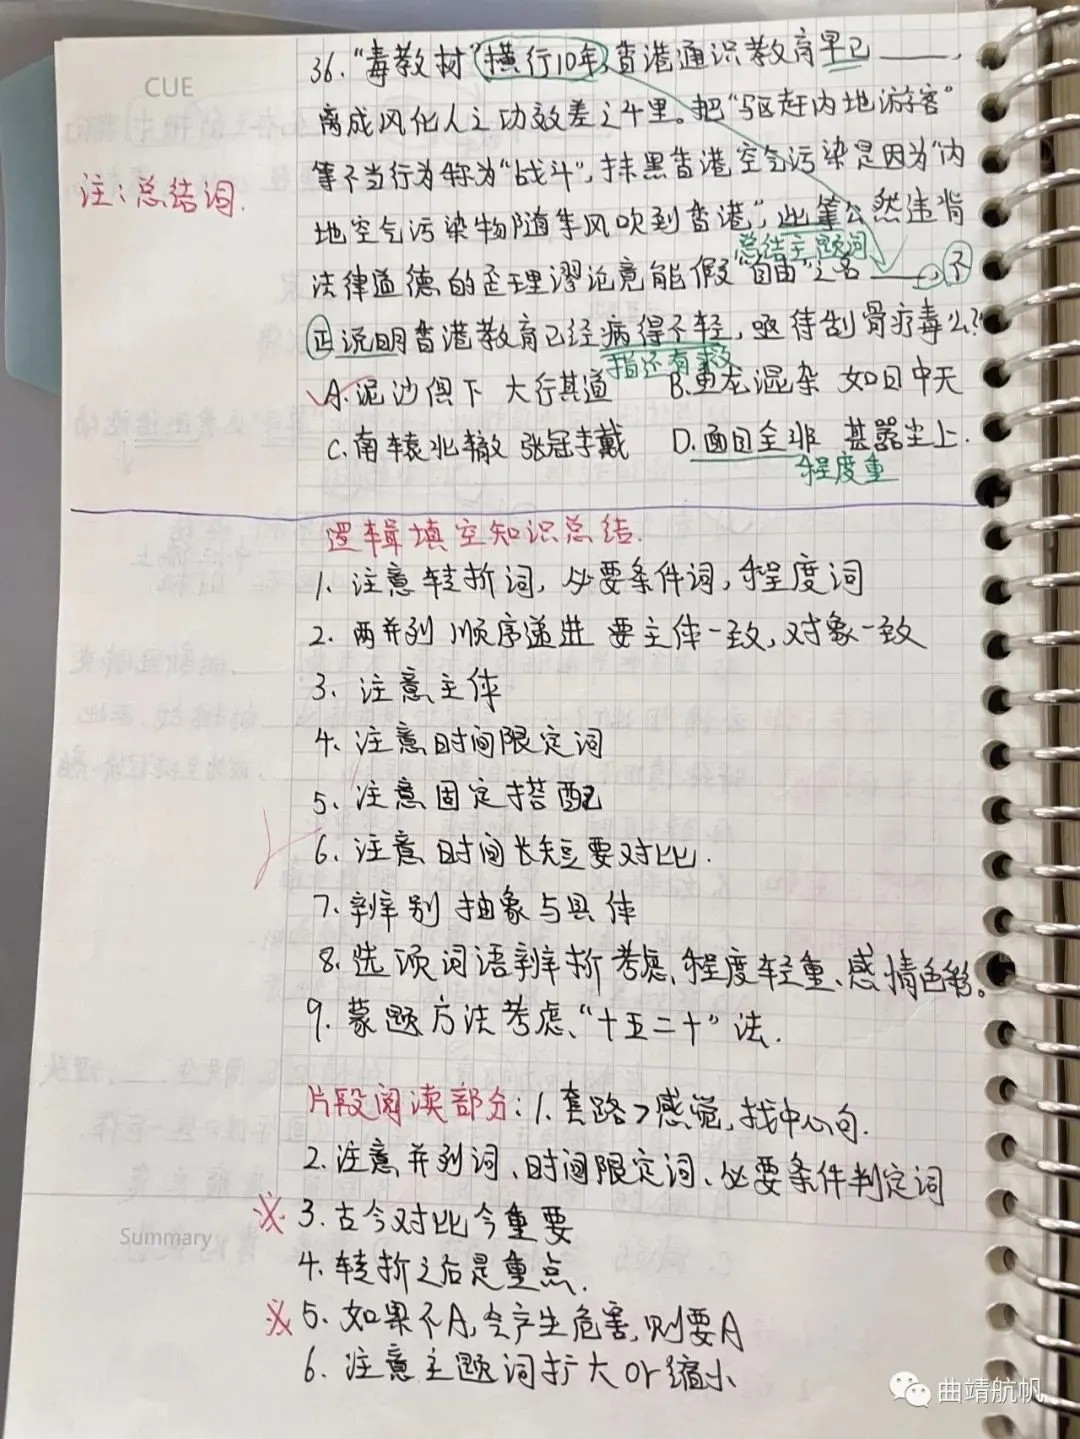 CUE
36. “毒教材”横行10年,香港通识教育早已____,
离成风化人之功效差之千里。把“驱赶内地游客”
注:总结词.
等不当行为称为“战斗”,抹黑香港空气污染是因为“内
地空气污染物随季风吹到香港”,此等公然违背
总结主题词
法律道德的歪理谬论竟能假“自由”之名____,不
正说明香港教育已经病得不轻,亟待刮骨疗毒么?
指还有救
A.泥沙俱下 大行其道 B.鱼龙混杂 如日中天
C.南辕北辙 张冠李戴 D.面目全非 甚嚣尘上.
程度重
逻辑填空知识总结.
1. 注意转折词,必要条件词,程度词
2. 两并列 顺序递进 要主体一致,对象一致
3. 注意主体
4. 注意时间限定词
5. 注意固定搭配
6. 注意时间长短要对比.
7. 辨别 抽象与具体
8. 选项词语辨析考虑、程度轻重、感情色彩。
9. 蒙题方法考虑、“十五二十”法.
片段阅读部分:1. 套路>感觉,找中心句.
2. 注意并列词、时间限定词、必要条件判定词
※ 3. 古今对比今重要
Summary
4. 转折之后是重点.
※ 5. 如果不A,会产生危害,则要A
6. 注意主题词扩大or缩小
曲靖航帆